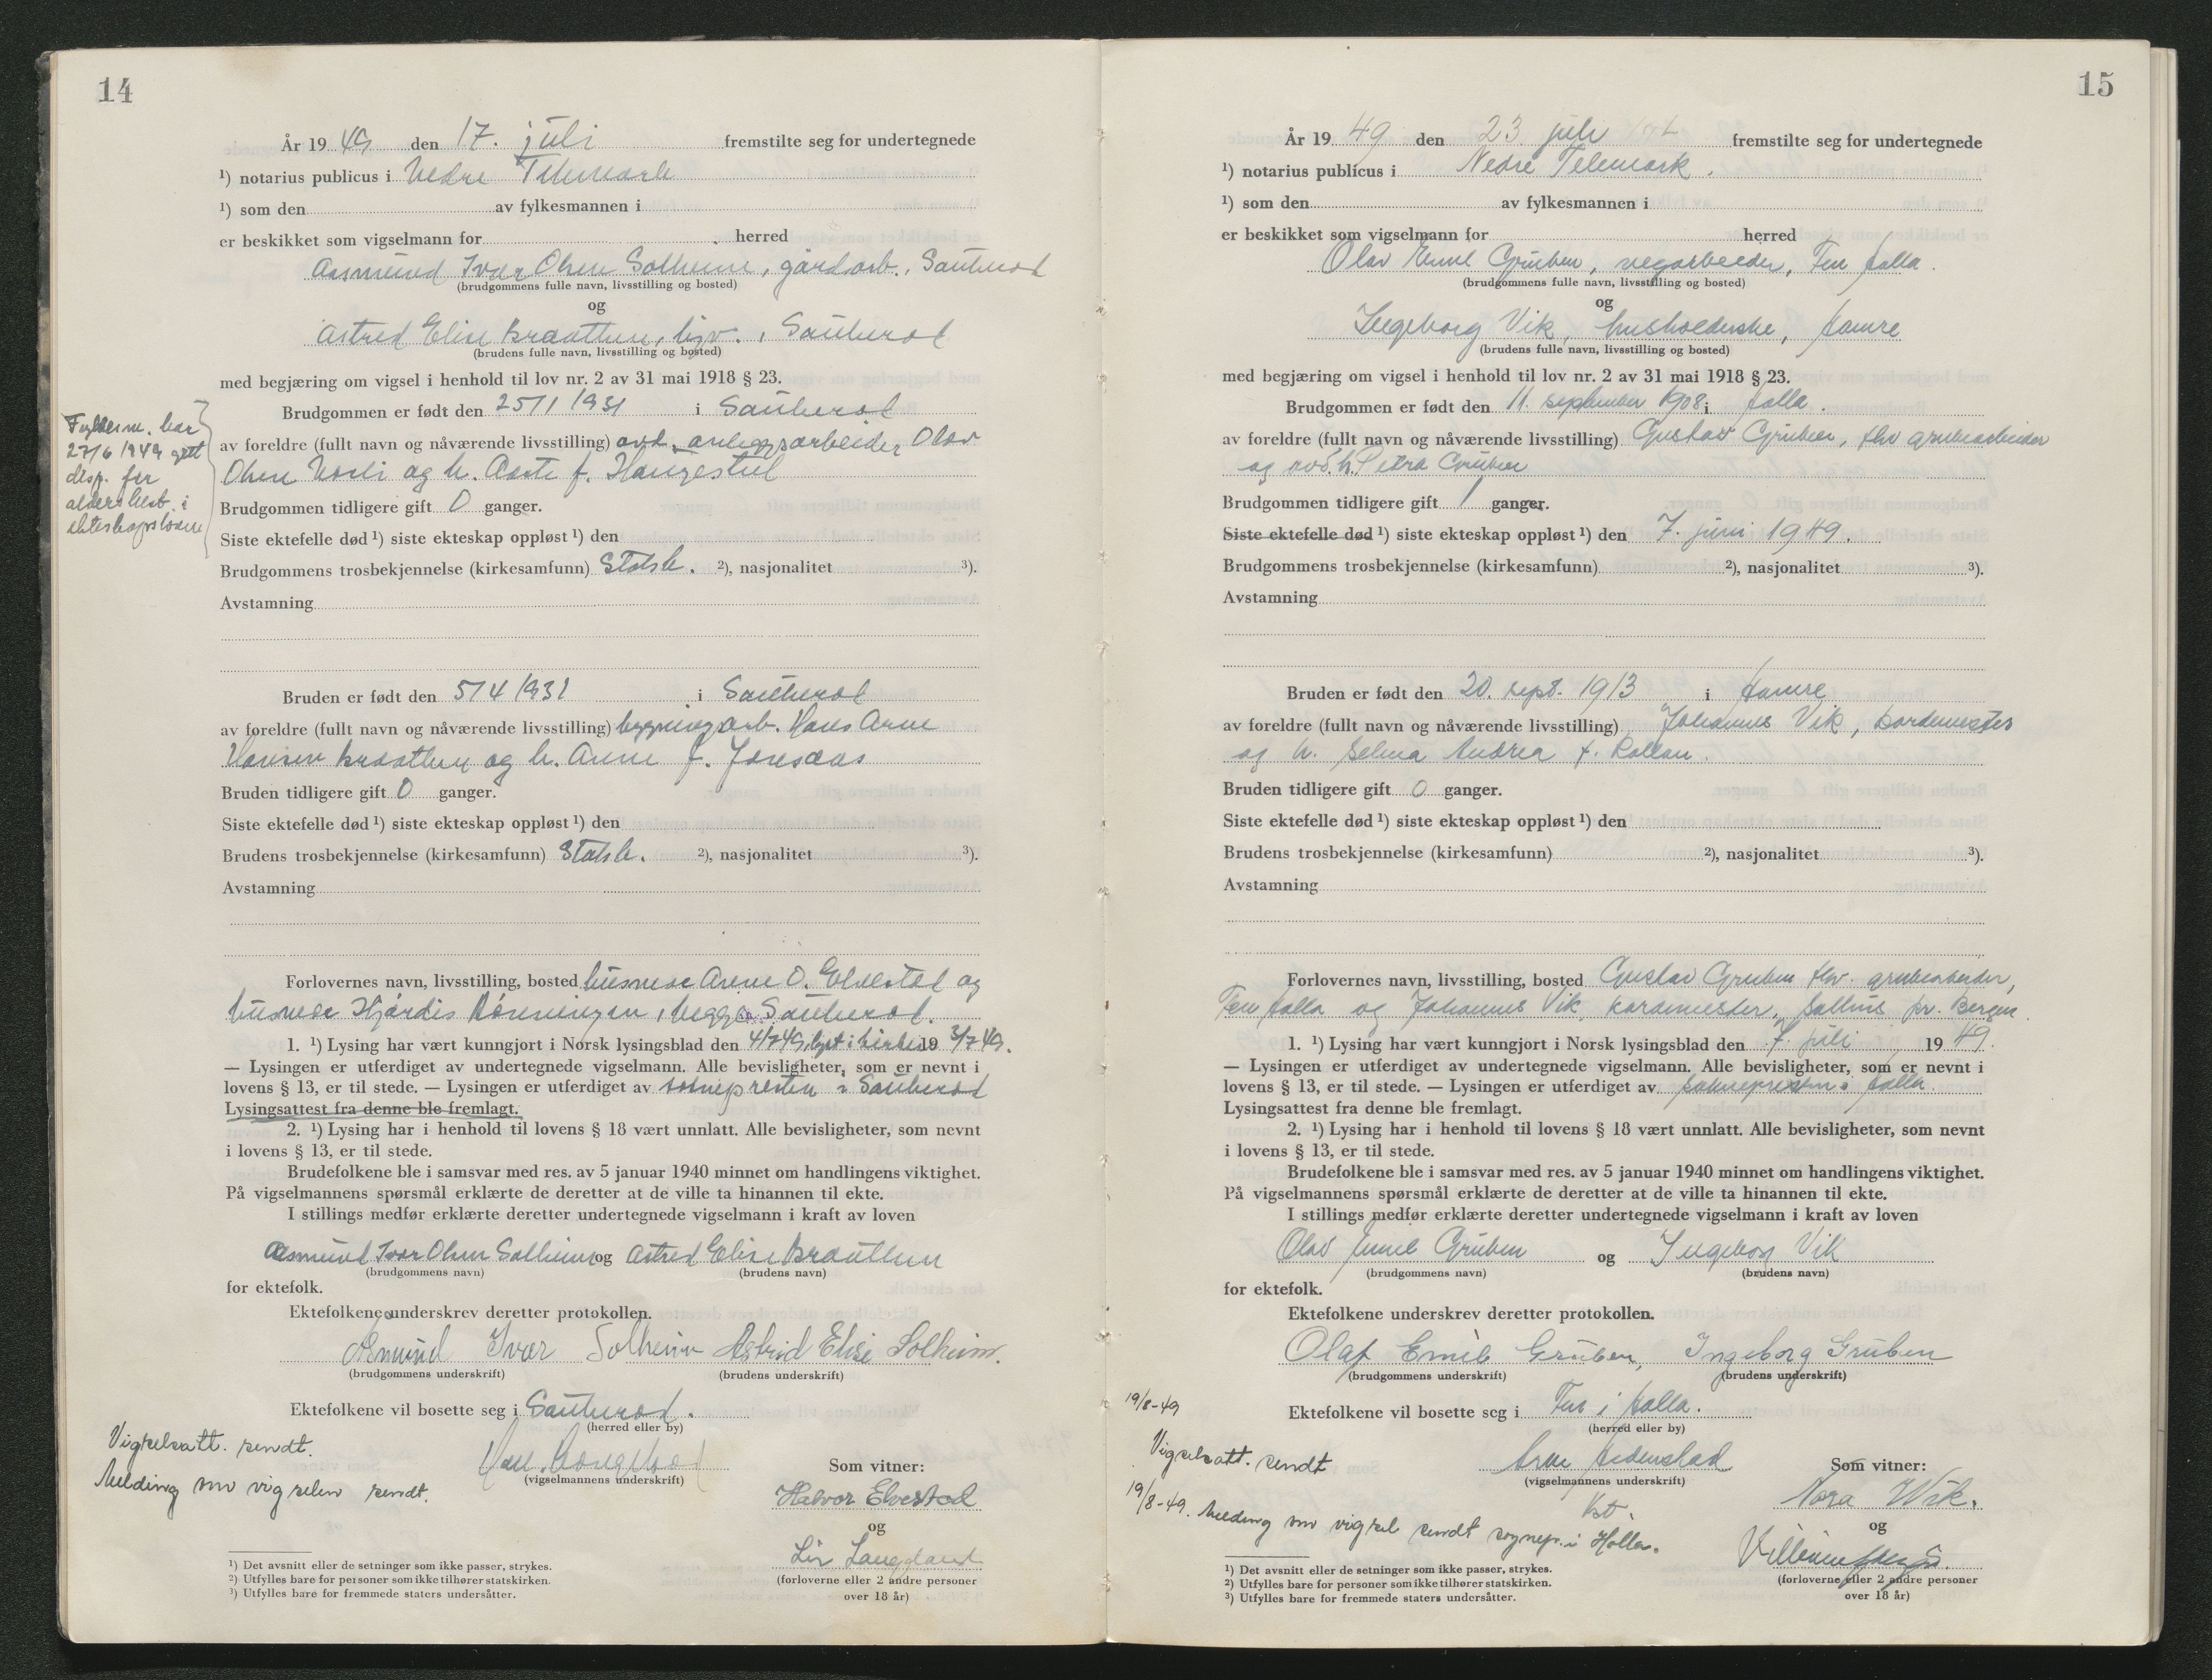 14
År 1949 den 17. juli fremstilte seg for undertegnede
¹) notarius publicus i Nedre Telemark
¹) som den av fylkesmannen i
er beskikket som vigselmann for herred
Aasmund Ivar Olsen Solheim, gårdarb., Sauherad
(brudgommens fulle navn, livsstilling og bosted)
og
Astrid Elise Braathen, Sauherad
(brudens fulle navn, livsstilling og bosted)
med begjæring om vigsel i henhold til lov nr. 2 av 31 mai 1918 § 23.
Brudgommen er født den 25/1 1931 i Sauherad
av foreldre (fullt navn og nåværende livsstilling) avd. anleggsarbeider Olav
Olsen og h. Aaste f. Haugestul
Fylkesm. har
27/6 1949 gitt
disp. fra
aldersbest. i
ekteskapsloven
Brudgommen tidligere gift 0 ganger.
Siste ektefelle død ¹) siste ekteskap oppløst ¹) den
Brudgommens trosbekjennelse (kirkesamfunn) Statsk. ²), nasjonalitet ³).
Avstamning
Bruden er født den 5/4 1931 i Sauherad
av foreldre (fullt navn og nåværende livsstilling) bygningsarb. Hans Arne
Hansen Braathen og h. Anne f. Jønsaas
Bruden tidligere gift 0 ganger.
Siste ektefelle død ¹) siste ekteskap oppløst ¹) den
Brudens trosbekjennelse (kirkesamfunn) Statsk. ²), nasjonalitet ³).
Avstamning
Forlovernes navn, livsstilling, bosted husmor Anne O. Elvestad og
husmor Hjørdis Rønningen, begge Sauherad.
1. ¹) Lysing har vært kunngjort i Norsk lysingsblad den 4/7 49, lyst i kirken 19 3/7 49.
— Lysingen er utferdiget av undertegnede vigselmann. Alle bevisligheter, som er nevnt i
lovens § 13, er til stede. — Lysingen er utferdiget av soknepresten i Sauherad
Lysingsattest fra denne ble fremlagt.
2. ¹) Lysing har i henhold til lovens § 18 vært unnlatt. Alle bevisligheter, som nevnt
i lovens § 13, er til stede.
Brudefolkene ble i samsvar med res. av 5 januar 1940 minnet om handlingens viktighet.
På vigselmannens spørsmål erklærte de deretter at de ville ta hinannen til ekte.
I stillings medfør erklærte deretter undertegnede vigselmann i kraft av loven
Aasmund Ivar Olsen Solheim og Astrid Elise Braathen
(brudgommens navn) (brudens navn)
for ektefolk.
Ektefolkene underskrev deretter protokollen.
Åsmund Ivar Solheim Astrid Elise Solheim.
(brudgommens underskrift) (brudens underskrift)
Ektefolkene vil bosette seg i Sauherad.
(herred eller by)
Vigselsatt. sendt.
Melding om vigselen sendt.
(vigselmannens underskrift)
Som vitner:
Halvor Elvestad
og
Liv Langeland
(forloverne eller 2 andre personer
over 18 år)
¹) Det avsnitt eller de setninger som ikke passer, strykes.
²) Utfylles bare for personer som ikke tilhører statskirken.
³) Utfylles bare for fremmede staters undersåtter.
15
År 1949 den 23 juli fremstilte seg for undertegnede
¹) notarius publicus i Nedre Telemark.
¹) som den av fylkesmannen i
er beskikket som vigselmann for herred
Olav Emil Gruben, vegarbeider, Fen Holla.
(brudgommens fulle navn, livsstilling og bosted)
og
Ingeborg Vik, husholderske, Hamre
(brudens fulle navn, livsstilling og bosted)
med begjæring om vigsel i henhold til lov nr. 2 av 31 mai 1918 § 23.
Brudgommen er født den 11. september 1908 i Holla.
av foreldre (fullt navn og nåværende livsstilling) Gustav Gruben, fhv. grubearbeider
og avd. h. Petra Gruben
Brudgommen tidligere gift 1 ganger.
Siste ektefelle død ¹) siste ekteskap oppløst ¹) den 7. juni 1949.
Brudgommens trosbekjennelse (kirkesamfunn) ²), nasjonalitet ³).
Avstamning
Bruden er født den 20. sept. 1913 i Hamre
av foreldre (fullt navn og nåværende livsstilling) Johannes Vik, kardemester
og h. Selma Andrea f.
Bruden tidligere gift 0 ganger.
Siste ektefelle død ¹) siste ekteskap oppløst ¹) den
Brudens trosbekjennelse (kirkesamfunn) ²), nasjonalitet ³).
Avstamning
Forlovernes navn, livsstilling, bosted Gustav Gruben fhv. grubearbeider,
Fen Holla og Johannes Vik, kardemester, Salhus pr. Bergen.
1. ¹) Lysing har vært kunngjort i Norsk lysingsblad den 7. juli 1949.
— Lysingen er utferdiget av undertegnede vigselmann. Alle bevisligheter, som er nevnt i
lovens § 13, er til stede. — Lysingen er utferdiget av soknepresten i Holla.
Lysingsattest fra denne ble fremlagt.
2. ¹) Lysing har i henhold til lovens § 18 vært unnlatt. Alle bevisligheter, som nevnt
i lovens § 13, er til stede.
Brudefolkene ble i samsvar med res. av 5 januar 1940 minnet om handlingens viktighet.
På vigselmannens spørsmål erklærte de deretter at de ville ta hinannen til ekte.
I stillings medfør erklærte deretter undertegnede vigselmann i kraft av loven
Olav Emil Gruben og Ingeborg Vik
(brudgommens navn) (brudens navn)
for ektefolk.
Ektefolkene underskrev deretter protokollen.
Olaf Emil Gruben, Ingeborg Gruben
(brudgommens underskrift) (brudens underskrift)
Ektefolkene vil bosette seg i Fen i Holla.
(herred eller by)
19/8-49
Vigselsatt. sendt
19/8-49. Melding om vigsel sendt sognep. i Holla.
Arne
(vigselmannens underskrift)
kst.
Som vitner:
Nora Wik.
og
(forloverne eller 2 andre personer
over 18 år)
¹) Det avsnitt eller de setninger som ikke passer, strykes.
²) Utfylles bare for personer som ikke tilhører statskirken.
³) Utfylles bare for fremmede staters undersåtter.